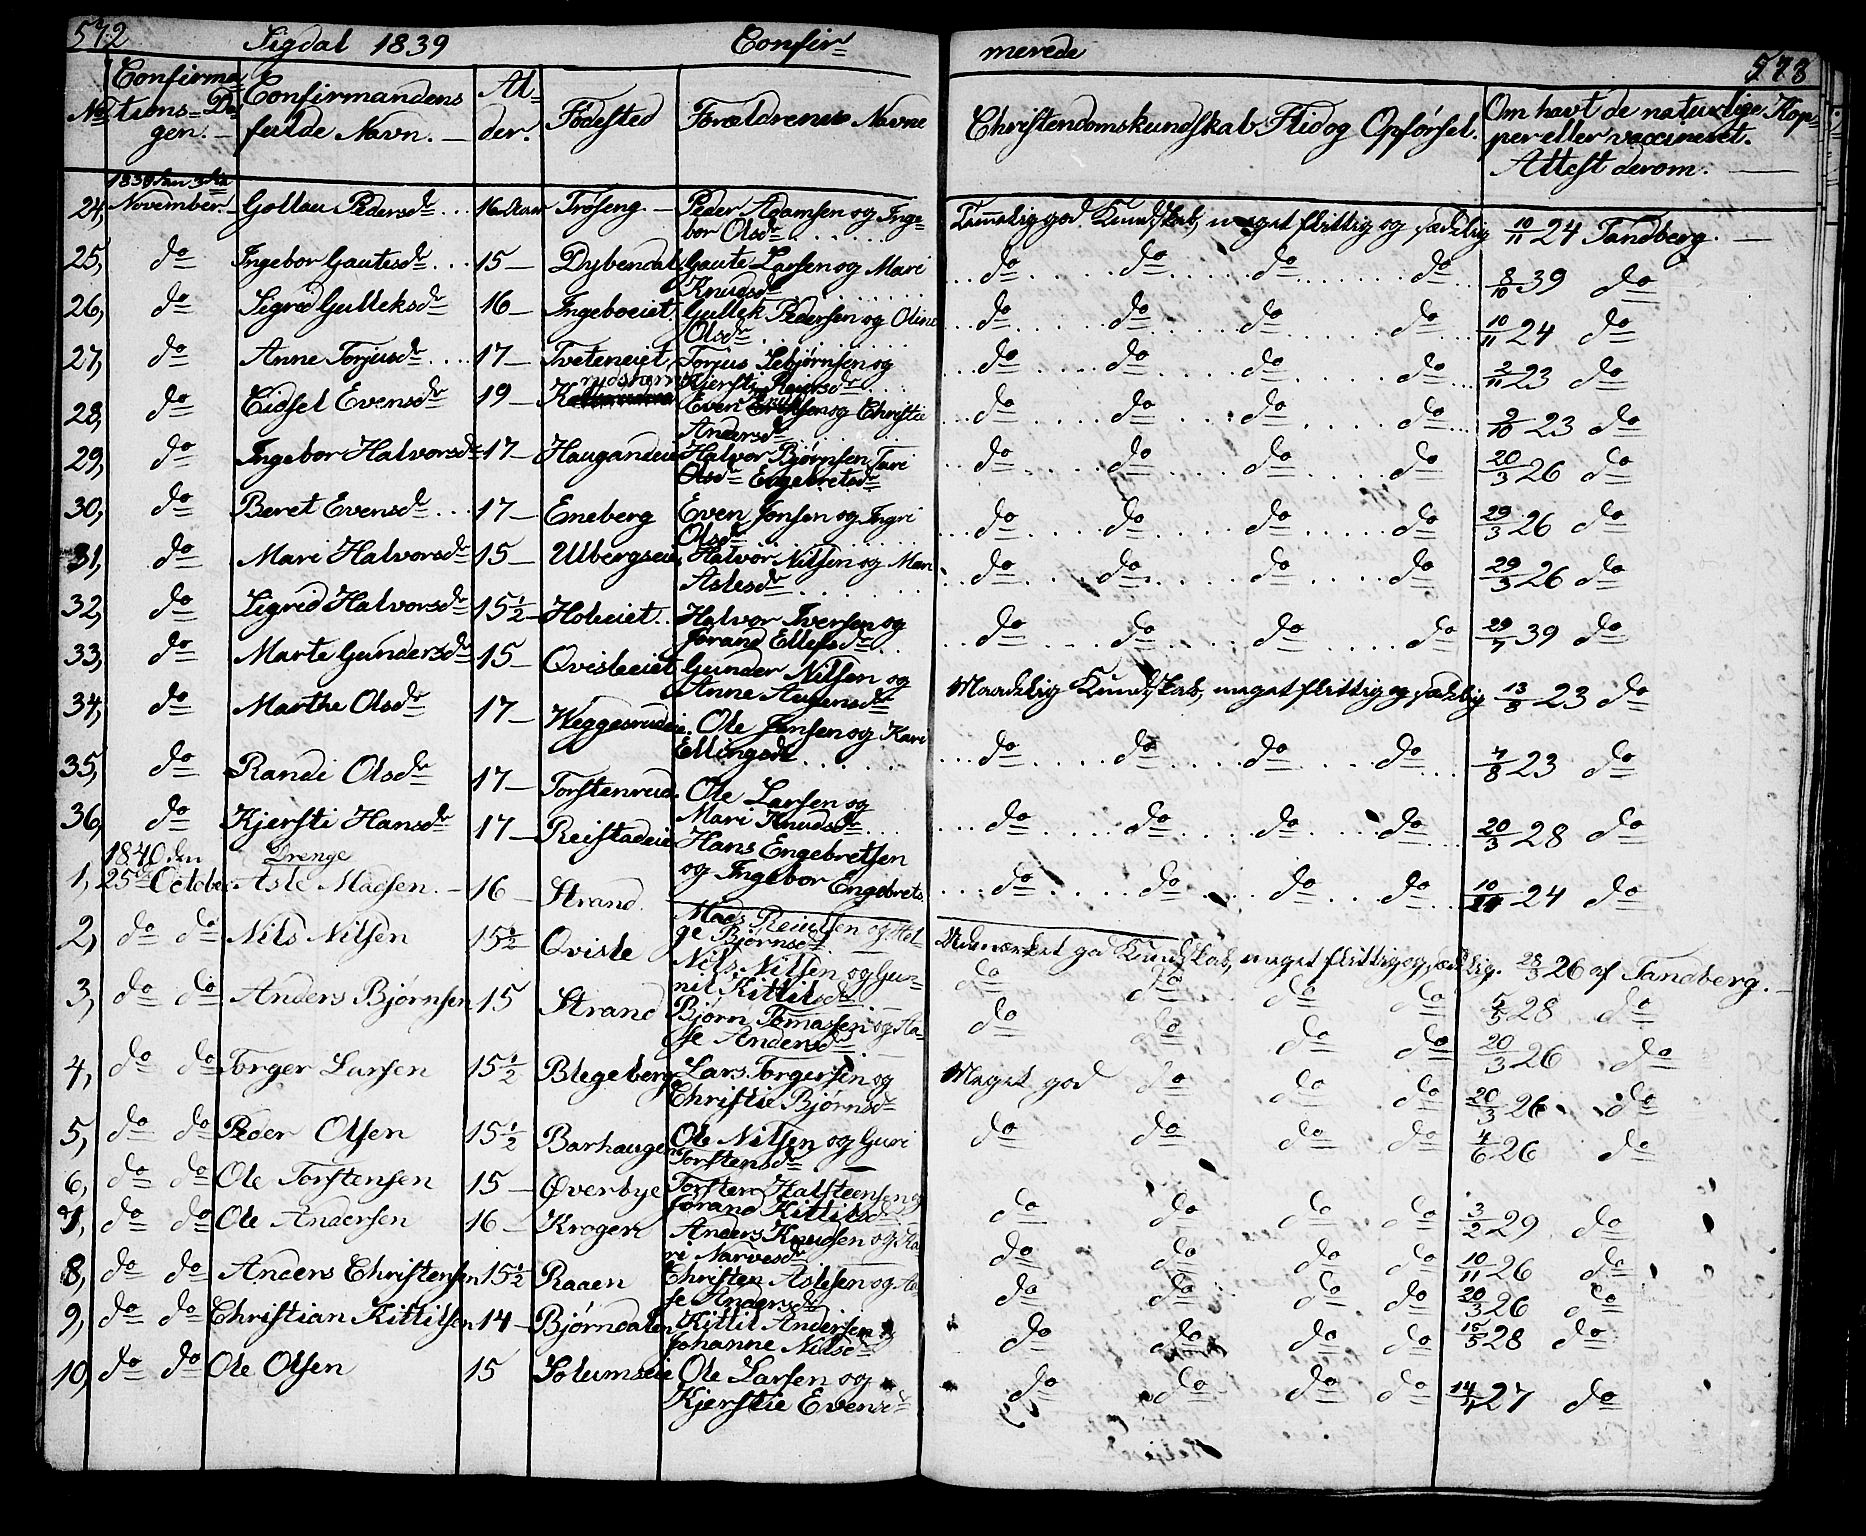 572 Sigdal 1839 Confir merede 573
No Confirma tions-Da gen. Confirmandens fulde Navn. Al der. Fødested Forældrenes Navne Christendomskundskab, Flid og Opførsel. Om havt de naturlige Kop per eller vaccineret. Attest derom.
1839 den 3die
24, November Pedersdr 16 Aar Trøseng Peder Adamsen og Inge Temmelig god Kundskab, meget flittig og sædelig 10/11 24 Tandberg.
bor Olsdr
25, do Ingebor Gautesdr 15 Dybendal Gaute Larsen og Mari do do do do 8/10 39 do
Knudsdr
26, do Sigrid Gulleksdr 16 Ingeboeiet Gullek Pedersen og Oline do do do do 10/11 24 do
Olsdr
27, do Anne Torjusdr 17 Tveteneiet Torjus Sebjørnsen og do do do do 2/11 23 do
Kjersti
28, do Eidsel Evensdr 19 Even og Christie do do do do 9/10 23 do
Andersdr
29, do Ingebor Halvorsdr 17 Haugandeie Halvor Bjørnsen Turi do do do do 20/3 26 do
Olsdr Engebretsdr
30, do Beret Evensdr 17 Eneberg Even Jonsen og Ingri do do do do 29/3 26 do
Olsdr
31, do Mari Halvorsdr 15 Ulbergseie Halvor Nilsen og Mari do do do do 29/3 26 do
Aslesdr
32, do Sigrid Halvorsdr 15½ Holieiet Halvor Iversen og do do do do 29/7 39 do
Jørand Ellefsdr
33, do Marte Gundersdr 15 Qvisleeiet Gunder Nilsen og Maadelig Kundskab, meget flittig og sædelig 13/8 23 do
Anne
34, do Marthe Olsdr 17 Weggesrudeie Ole Jensen og Kari do do do do 7/8 23 do
Ellingsdr
35, do Randi Olsdr 17 Torstenrud Ole Larsen og do do do do 20/3 28 do
Mari Knudsdr
36, do Kjersti Hansdr 17 Reistadeie Hans Engebretsen do do do do 10/11 24 do
og Ingebor Engebrets
1840 den Drenge
1, 25de October Asle Madsen 16 Strand Mads og Hel- Udmærket god Kundskab, meget flittig og sædelig. 28/3 26 af Tandberg.
ge Bjørnsdr
2, do do Nils Nilsen 15½ Qvisle Nils Nilsen og Gu- do do do do 5/5 28 do
nil Kittilsdr
3, do do Anders Bjørnsen 15 Strand Bjørn Tomassen og Aa- do do do do 20/3 26 do
se Andersdr
4, do do Torger Larsen 15½ Blegeberg Lars Torgersen og Meget god do do do 20/3 26 do
Christie Bjørnsdr
5, do do Peder Olsen 15½ Barhaugen Ole Nilsen og Guri do do do do 4/6 26 do
Torstensdr
6, do do Ole Torstensen 15 Øverbye Torsten Halsteensen og do do do do 3/2 29 do
Jørand Kittilsdr
7, do do Ole Andersen 16 Kroger Anders Knudsen og Ka- do do do do 10/11 26 do
ri Narvesdr
8, do do Anders Christensen 15½ Raaen Christen Aslesen og Aa- do do do do 20/3 26 do
se Andersdr
9, do do Christian Kittilsen 14 Bjørndalen Kittil Andersen og do do do do 15/5 28 do
Johanne Nilsdr
10, do do Ole Olsen 15 Solumseie Ole Larsen og do do do do 14/7 27 do
Kjerstie Evensdr